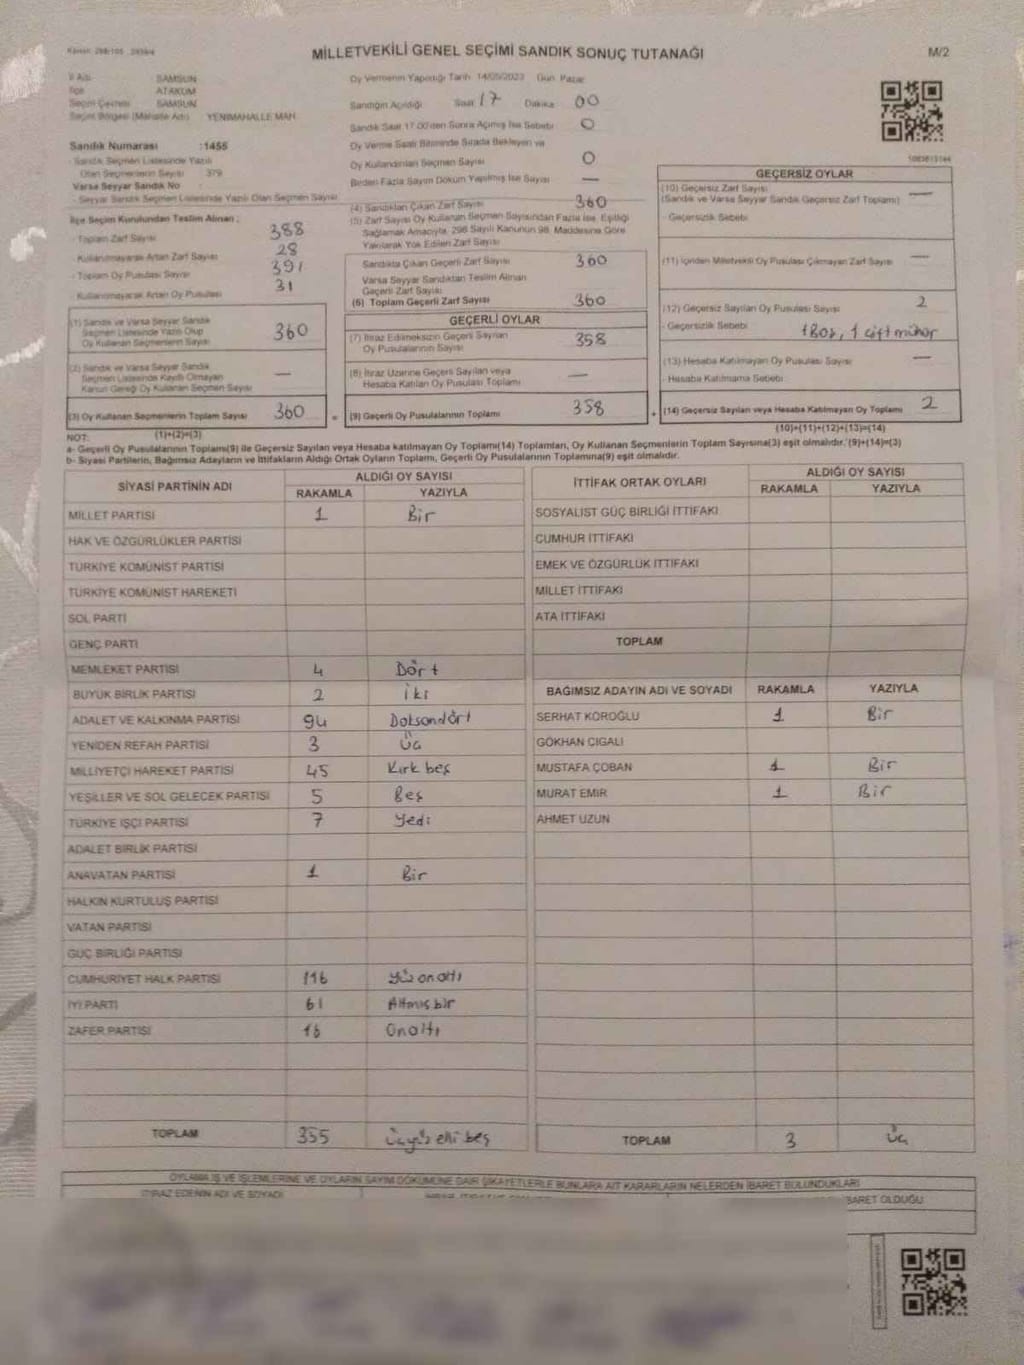 MİLLETVEKİLİ GENEL SEÇİMİ SANDIK SONUÇ TUTANAĞI
M/2
İl Adı SAMSUN
İlçe ATAKUM
Seçim Çevresi SAMSUN
Seçim Bölgesi (Mahalle Adı) YENİMAHALLE MAH.
Sandık Numarası :1455
Sandık Seçmen Listesinde Yazılı
Olan Seçmenlerin Sayısı 379
Varsa Seyyar Sandık No :
- Seyyar Sandık Seçmen Listesinde Yazılı Olan Seçmen Sayısı
İlçe Seçim Kurulundan Teslim Alınan ;
- Toplam Zarf Sayısı 388
- Kullanılmayarak Artan Zarf Sayısı 28
- Toplam Oy Pusulası Sayısı 391
- Kullanılmayarak Artan Oy Pusulası 31
(1) Sandık ve Varsa Seyyar Sandık
Seçmen Listesinde Yazılı Olup
Oy Kullanan Seçmenlerin Sayısı 360
(2) Sandık ve Varsa Seyyar Sandık
Seçmen Listesinde Kayıtlı Olmayan
Kanun Gereği Oy Kullanan Seçmen Sayısı —
(3) Oy Kullanan Seçmenlerin Toplam Sayısı 360
(1)+(2)=(3)
Oy Vermenin Yapıldığı Tarih 14/05/2023 Gün Pazar
Sandığın Açıldığı Saat 17 Dakika 00
Sandık Saat 17.00'den Sonra Açılmış İse Sebebi 0
Oy Verme Saati Bitiminde Sırada Bekleyen ve
Oy Kullandırılan Seçmen Sayısı 0
Birden Fazla Sayım Döküm Yapılmış İse Sayısı —
(4) Sandıktan Çıkan Zarf Sayısı 360
(5) Zarf Sayısı Oy Kullanan Seçmen Sayısından Fazla İse, Eşitliği
Sağlamak Amacıyla, 298 Sayılı Kanunun 98. Maddesine Göre
Yakılarak Yok Edilen Zarf Sayısı
Sandıkta Çıkan Geçerli Zarf Sayısı 360
Varsa Seyyar Sandıktan Teslim Alınan
Geçerli Zarf Sayısı
(6) Toplam Geçerli Zarf Sayısı 360
GEÇERLİ OYLAR
(7) İtiraz Edilmeksizin Geçerli Sayılan
Oy Pusulalarının Sayısı 358
(8) İtiraz Üzerine Geçerli Sayılan veya
Hesaba Katılan Oy Pusulası Toplamı —
= (9) Geçerli Oy Pusulalarının Toplamı 358
GEÇERSİZ OYLAR
(10) Geçersiz Zarf Sayısı —
(Sandık ve Varsa Seyyar Sandık Geçersiz Zarf Toplamı)
- Geçersizlik Sebebi
(11) İçinden Milletvekili Oy Pusulası Çıkmayan Zarf Sayısı —
(12) Geçersiz Sayılan Oy Pusulası Sayısı 2
- Geçersizlik Sebebi 1 Boş, 1 çift mühür
(13) Hesaba Katılmayan Oy Pusulası Sayısı —
- Hesaba Katılmama Sebebi
+ (14) Geçersiz Sayılan veya Hesaba Katılmayan Oy Toplamı 2
(10)+(11)+(12)+(13)=(14)
NOT:
a- Geçerli Oy Pusulalarının Toplamı(9) ile Geçersiz Sayılan veya Hesaba katılmayan Oy Toplamı(14) Toplamları, Oy Kullanan Seçmenlerin Toplam Sayısına(3) eşit olmalıdır.'(9)+(14)=(3)
b- Siyasi Partilerin, Bağımsız Adayların ve İttifakların Aldığı Ortak Oyların Toplamı, Geçerli Oy Pusulalarının Toplamına(9) eşit olmalıdır.
SİYASİ PARTİNİN ADI ALDIĞI OY SAYISI
RAKAMLA YAZIYLA
MİLLET PARTİSİ 1 Bir
HAK VE ÖZGÜRLÜKLER PARTİSİ
TÜRKİYE KOMÜNİST PARTİSİ
TÜRKİYE KOMÜNİST HAREKETİ
SOL PARTİ
GENÇ PARTİ
MEMLEKET PARTİSİ 4 Dört
BÜYÜK BİRLİK PARTİSİ 2 iki
ADALET VE KALKINMA PARTİSİ 94 Doksandört
YENİDEN REFAH PARTİSİ 3 Üç
MİLLİYETÇİ HAREKET PARTİSİ 45 Kırk beş
YEŞİLLER VE SOL GELECEK PARTİSİ 5 Beş
TÜRKİYE İŞÇİ PARTİSİ 7 Yedi
ADALET BİRLİK PARTİSİ
ANAVATAN PARTİSİ 1 Bir
HALKIN KURTULUŞ PARTİSİ
VATAN PARTİSİ
GÜÇ BİRLİĞİ PARTİSİ
CUMHURİYET HALK PARTİSİ 116 Yüz onaltı
İYİ PARTİ 61 Altmış bir
ZAFER PARTİSİ 16 Onaltı
TOPLAM 355 Üçyüz elli beş
İTTİFAK ORTAK OYLARI ALDIĞI OY SAYISI
RAKAMLA YAZIYLA
SOSYALİST GÜÇ BİRLİĞİ İTTİFAKI
CUMHUR İTTİFAKI
EMEK VE ÖZGÜRLÜK İTTİFAKI
MİLLET İTTİFAKI
ATA İTTİFAKI
TOPLAM
BAĞIMSIZ ADAYIN ADI VE SOYADI RAKAMLA YAZIYLA
SERHAT KÖROĞLU 1 Bir
GÖKHAN CIGALI
MUSTAFA ÇOBAN 1 Bir
MURAT EMİR 1 Bir
AHMET UZUN
TOPLAM 3 Üç
OYLAMA İŞ VE İŞLEMLERİNE VE OYLARIN SAYIM DÖKÜMÜNE DAİR ŞİKAYETLERLE BUNLARA AİT KARARLARIN NELERDEN İBARET BULUNDUKLARI
İTİRAZ EDENİN ADI VE SOYADI
BARET OLDUĞU